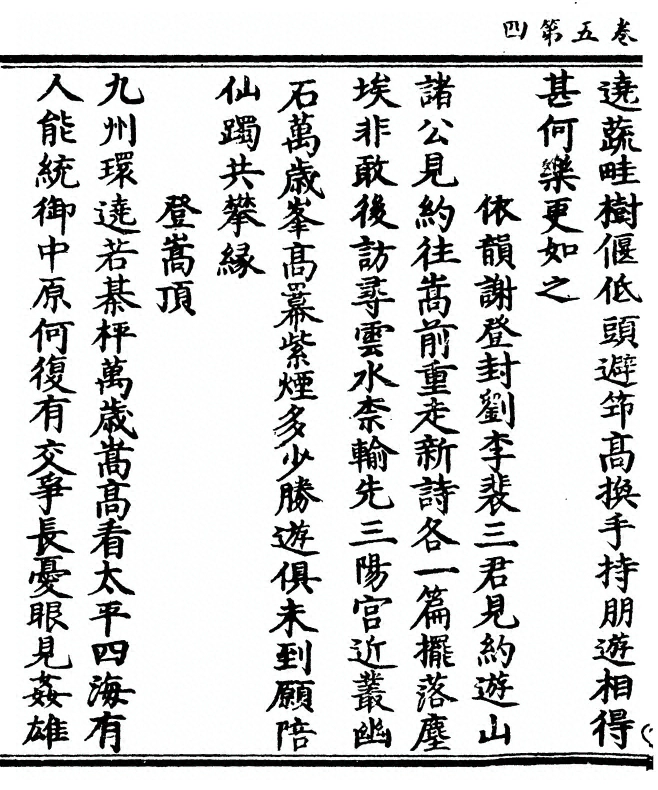 卷五第四
遶蔬畦樹偃低頭避筇高換手持朋遊相得
甚何樂更如之
依韻謝登封劉李裴三君見約遊山
諸公見約往嵩前重走新詩各一篇擺落塵
埃非敢後訪尋雲水柰輸先三陽宮近叢幽
石萬歲峯高羃紫煙多少勝遊俱未到願陪
仙躅共攀緣
登嵩頂
九州環遶若棊枰萬歲嵩高看太平四海有
人能統御中原何復有交爭長憂眼見姦雄